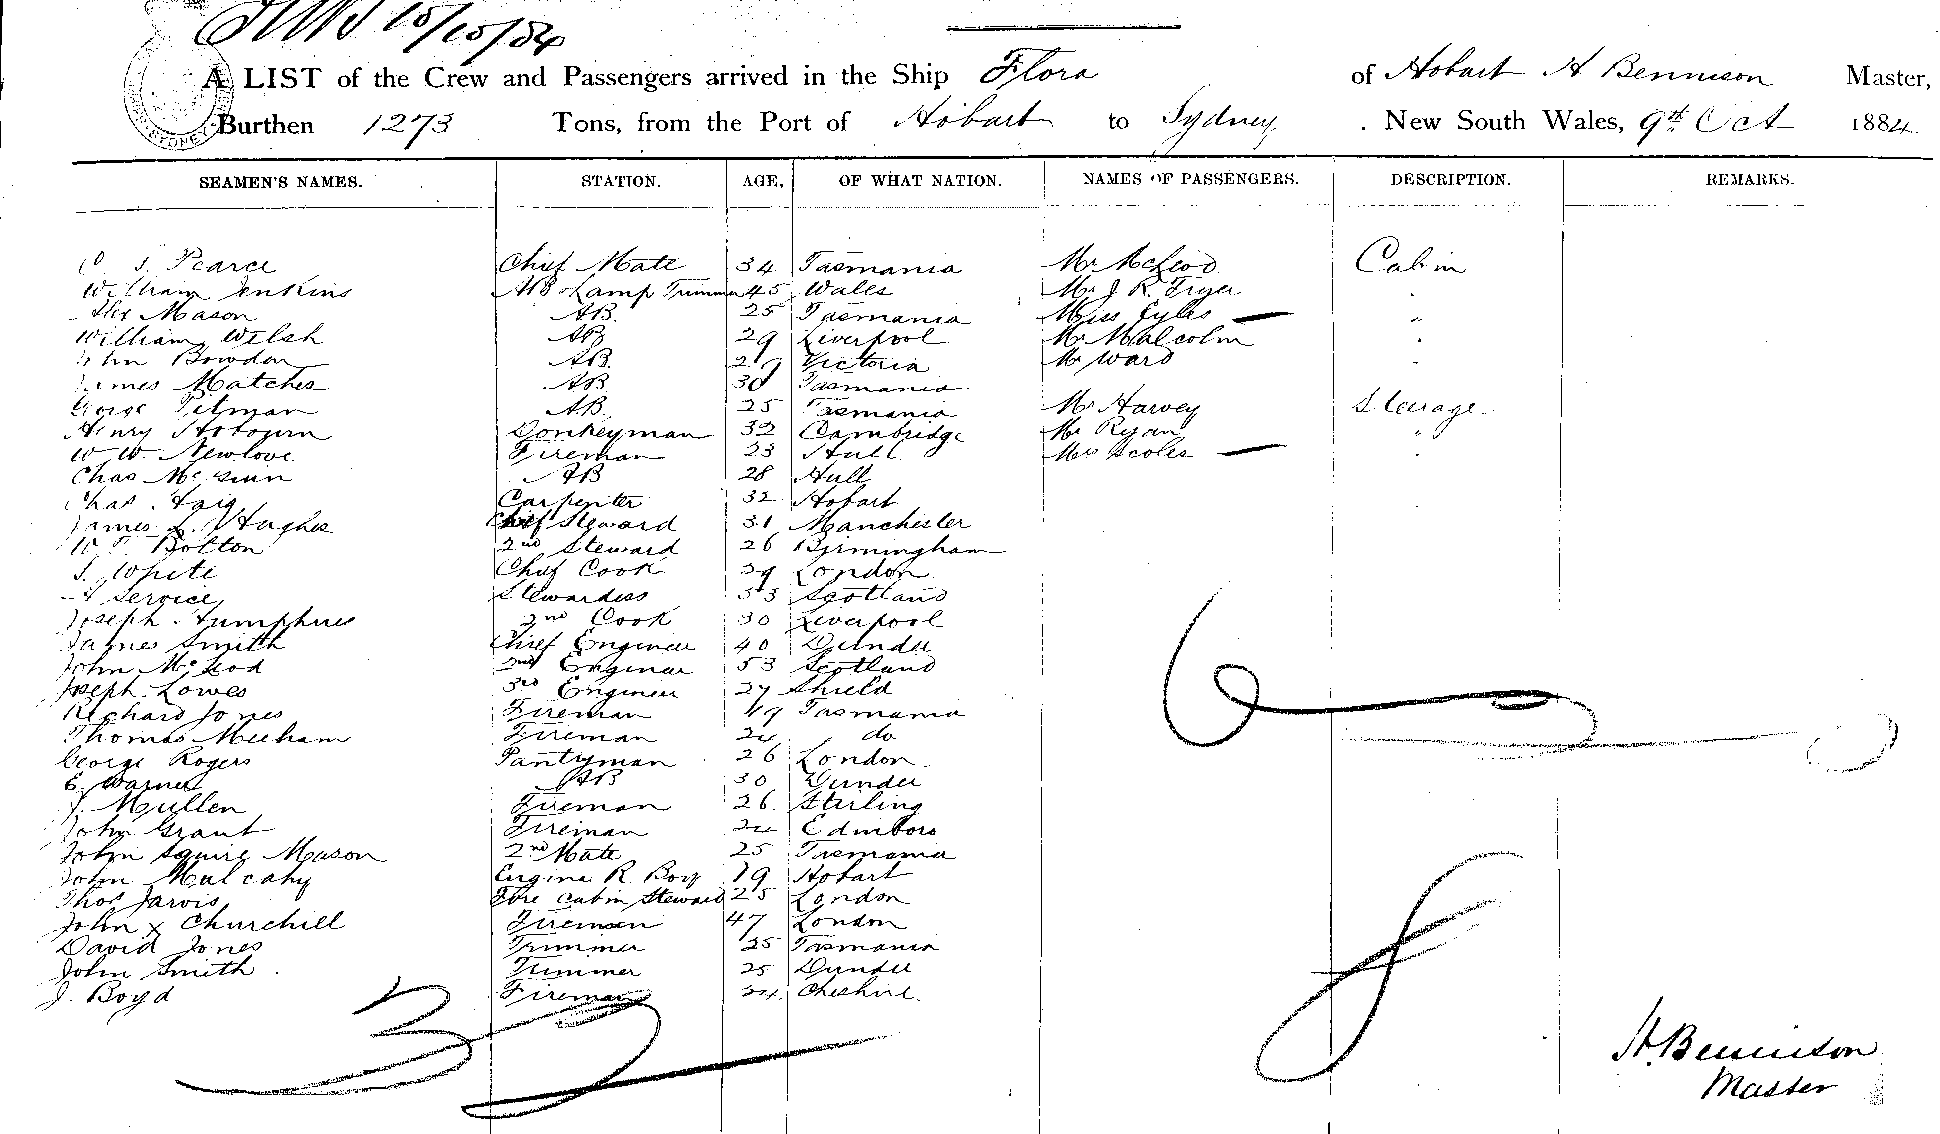 15/10/84
A LIST of the Crew and Passengers arrived in the Ship Flora of Hobart H Bennison Master,
Burthen 1273 Tons, from the Port of Hobart to Sydney. New South Wales, 9th Oct 1884.
SEAMEN'S NAMES. STATION. AGE. OF WHAT NATION. NAMES OF PASSENGERS. DESCRIPTION. REMARKS.
Pearce Chief Mate 34 Tasmania Mr McLeod Cabin
William Jenkins AB & Lamp Trimmer 45 Wales Mr J R Fryer "
Mason AB. 25 Tasmania Miss Eyles — "
William Welsh AB 29 Liverpool Mr Malcolm "
John Bowden AB. Victoria Mr Ward "
James Matches AB 30 Tasmania
George Pitman AB. 25 Tasmania Mr Harvey Steerage
Henry Donkeyman 32 Cambridge Mr Ryan "
W W. Newlove Fireman 23 Hull Mrs Scoles — "
Chas AB 28 Hull
Chas. Haig Carpenter 32 Hobart
James L. Hughes Chief Steward 31 Manchester
W T Bolton 2nd Steward 26 Birmingham
S. White Chief Cook 39 London
Service Stewardess 33 Scotland
Joseph Humphries 2nd Cook 30 Liverpool
James Smith Chief Engineer 40 Dundee
John McLeod 2nd Engineer 53 Scotland
Joseph Lowes 3rd Engineer 27 Shield
Richard Jones Fireman 19 Tasmania
Thomas Meeham Fireman 24 do
George Rogers Pantryman 26 London
E. Warner AB 30 Dundee
J. Mullen Fireman 26 Stirling
John Grant Fireman 24 Edinboro
John Squire Mason 2nd Mate 25 Tasmania
John Mulcahy Engine R. Boy 19 Hobart
Thos Jarvis Fore Cabin Steward 25 London
John x Churchill Fireman 47 London
David Jones Trimmer 25 Tasmania
John Smith Trimmer 25 Dundee
J. Boyd Fireman 34 Cheshire.
H. Bennison
Master